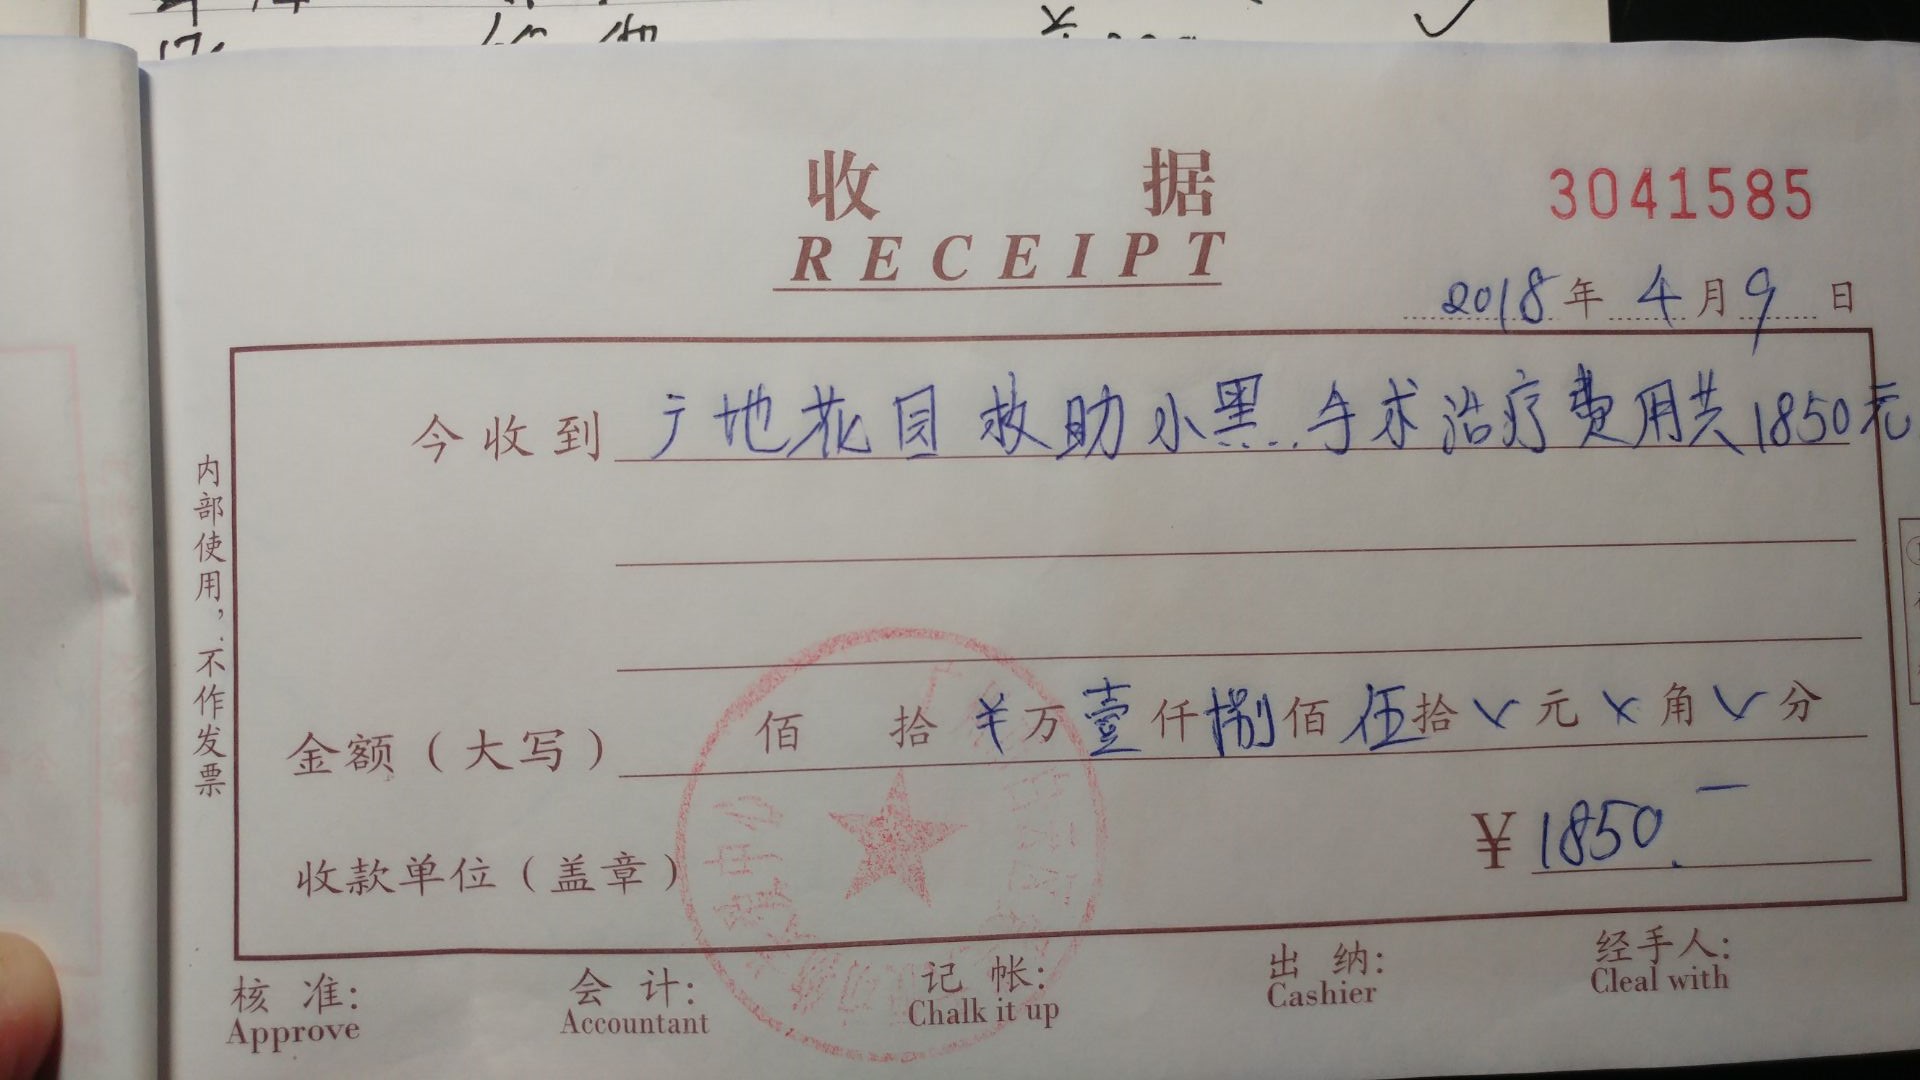 收 据
3041585
RECEIPT
2018年4月9日
今收到 广地花园 救助小黑..手术治疗费用共1850元
内部使用，不作发票
金额（大写） 佰 拾 ¥万壹仟捌佰伍拾 元 角 分
收款单位（盖章） ¥1850.—
核 准: 会 计: 记 帐: 出 纳: 经手人:
Approve Accountant Chalk it up Cashier Cleal with